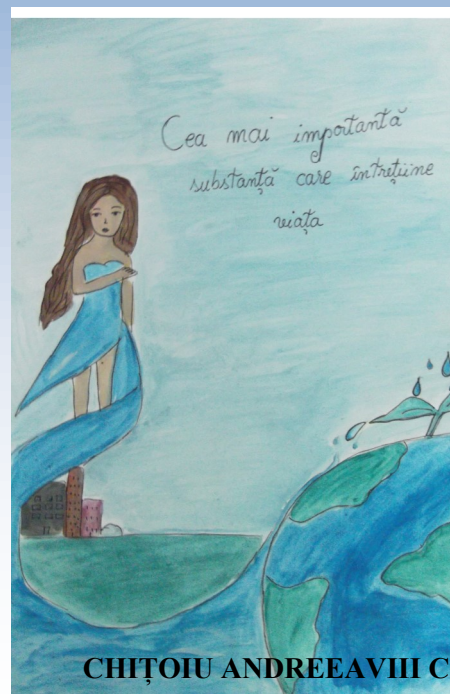 Cea mai importantă
substanță care întreține
viața
CHIȚOIU ANDREEAVIII C